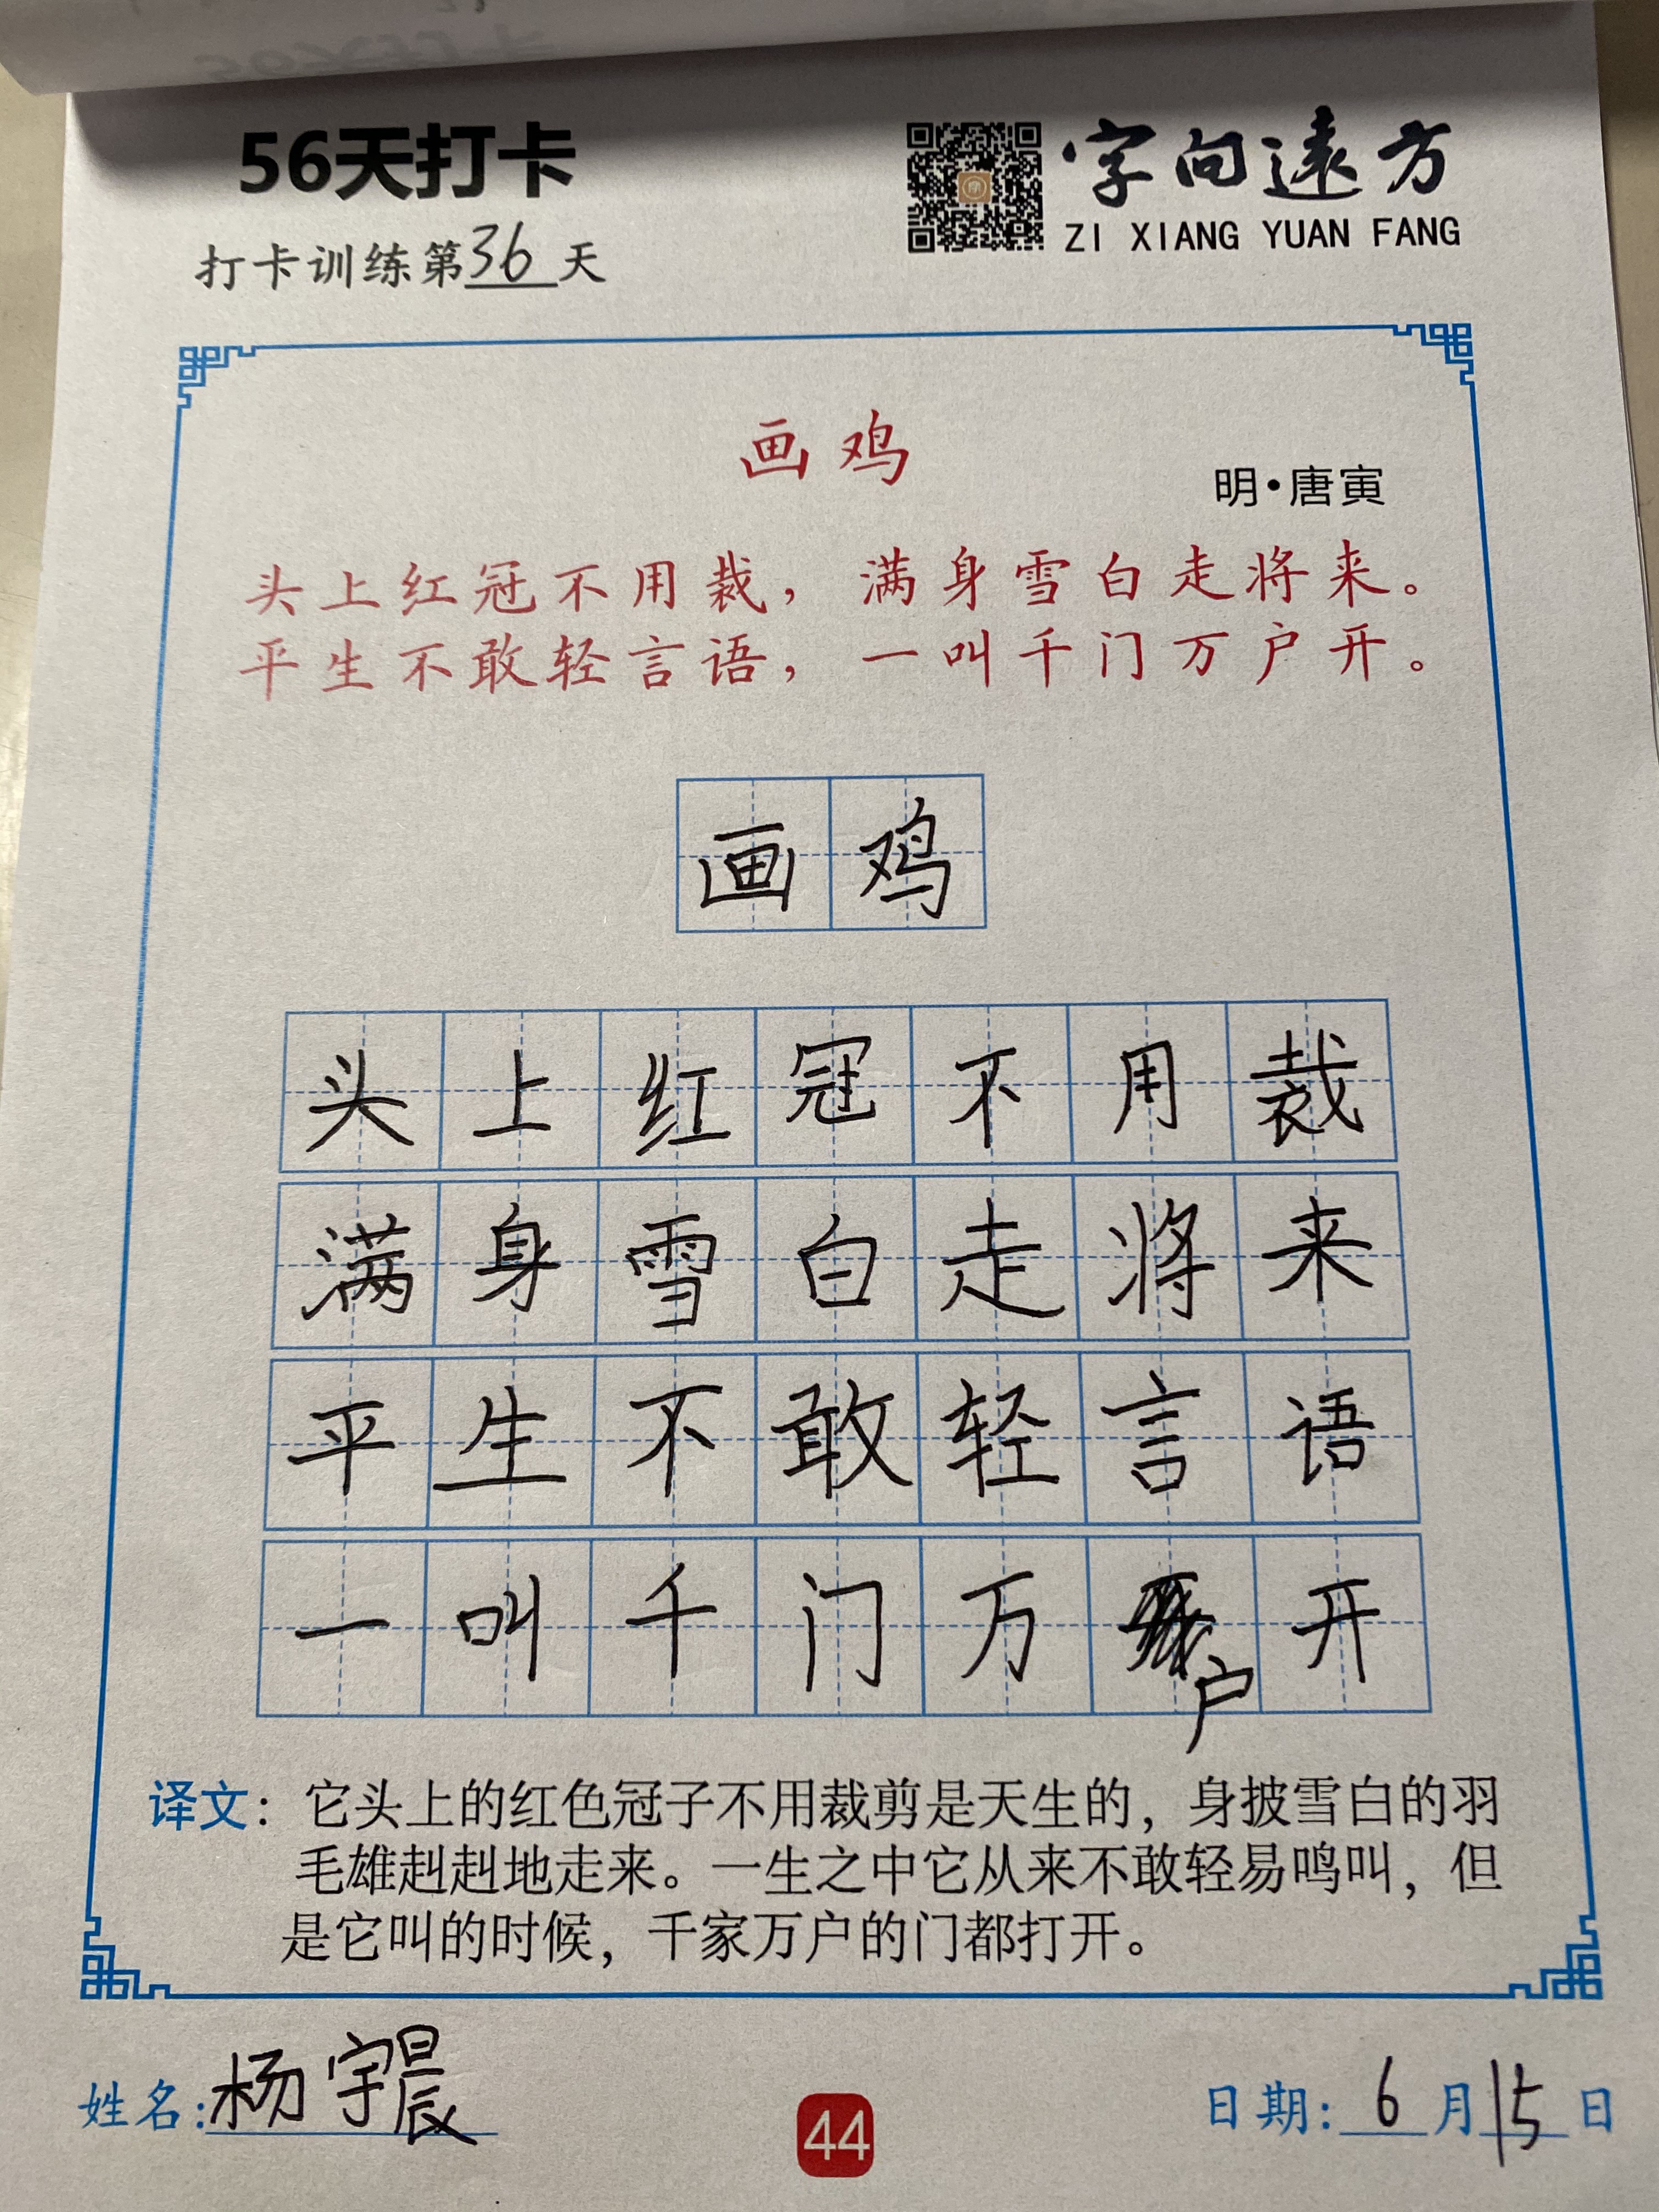 56天打卡
字向遠方
ZI XIANG YUAN FANG
打卡训练第36天
画鸡
明·唐寅
头上红冠不用裁，满身雪白走将来。
平生不敢轻言语，一叫千门万户开。
画鸡
头上红冠不用裁
满身雪白走将来
平生不敢轻言语
一叫千门万户开
译文：它头上的红色冠子不用裁剪是天生的，身披雪白的羽
毛雄赳赳地走来。一生之中它从来不敢轻易鸣叫，但
是它叫的时候，千家万户的门都打开。
姓名:杨宇晨
44
日期:6月15日